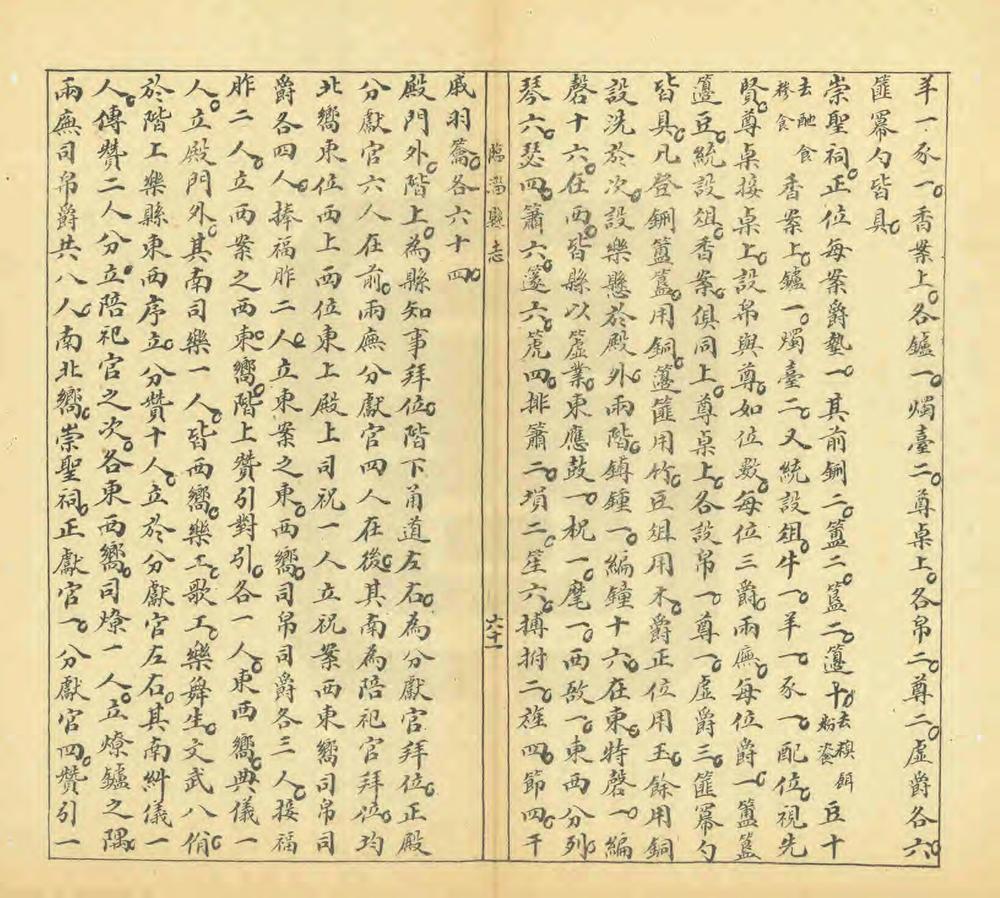 羊一豕一香案上各鑪一燭臺二尊桌上各帛二尊二虛爵各六
篚冪勺皆具
崇聖祠正位每案爵墊一其前鉶二簠二簋二籩十去糗餌粉餈豆十
去酏食糝食香案上鑪一燭臺二又統設俎牛一羊一豕一配位視先
賢尊桌接桌上設帛與尊如位數每位三爵兩廡每位爵一簠簋
籩豆統設俎香案俱同上尊桌上各設帛一尊一虛爵三篚冪勺
皆具凡登鉶簠簋用銅籩篚用竹豆俎用木爵正位用玉餘用銅
設洗於次設樂懸於殿外兩階鎛鍾一編鐘十六在東特磬一編
磬十六在西皆縣以簴業東應鼓一柷一麾一西敔一東西分列
琴六瑟四簫六篴六篪四排簫二塤二笙六搏拊二旌四節四干
臨淄縣志
六十一
戚羽籥各六十四
殿門外階上為縣知事拜位階下甬道左右為分獻官拜位正殿
分獻官六人在前兩廡分獻官四人在後其南為陪祀官拜位均
北嚮東位西上西位東上殿上司祝一人立祝案西東嚮司帛司
爵各四人捧福胙二人立東案之東西嚮司帛司爵各三人接福
胙二人立西案之西東嚮階上贊引對引各一人東西嚮典儀一
人立殿門外其南司樂一人皆西嚮樂工歌工樂舞生文武八佾
於階工樂縣東西序立分贊十人立於分獻官左右其南糾儀一
人傳贊二人分立陪祀官之次各東西嚮司燎一人立燎鑪之隅
兩廡司帛爵共八人南北嚮崇聖祠正獻官一分獻官四贊引一